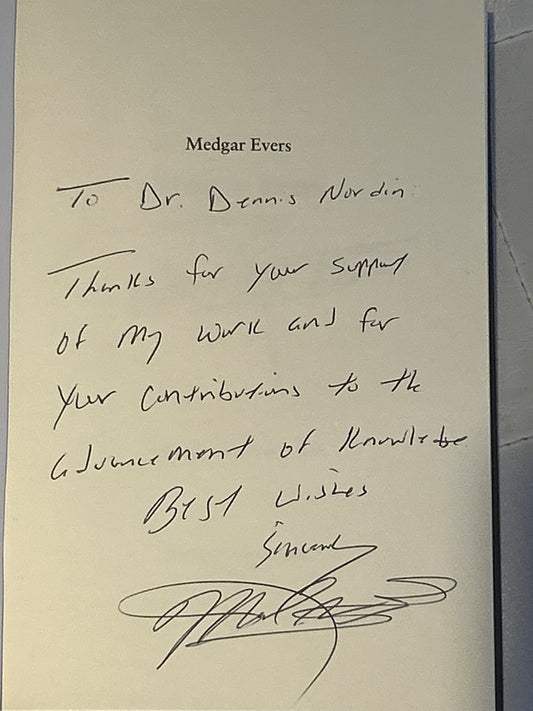 Medgar Evers
To Dr. Dennis Nordin
Thanks for your support
of my work and for
your contributions to the
advancement of knowledge
Best wishes
Sincerely